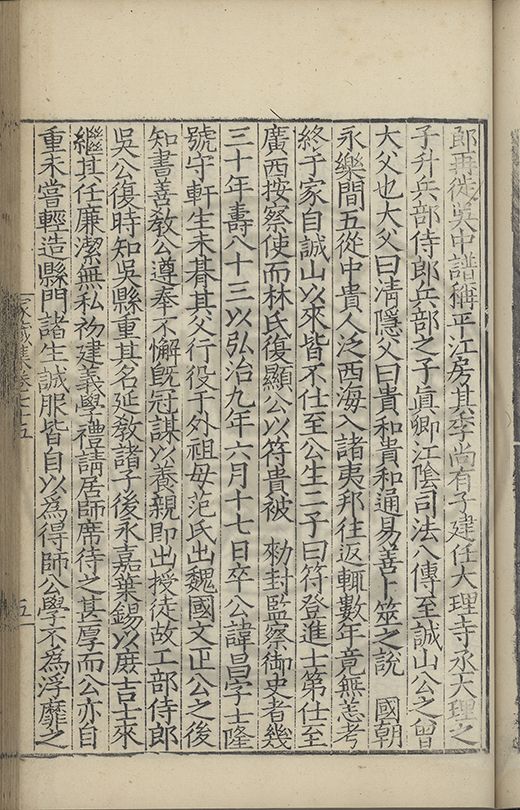 郎再徙吳中譜稱平江房其季尚有子建任大理寺丞大理之
子升兵部侍郎兵部之子真卿江陰司法八傳至誠山公之曾
大父也大父曰清隱父曰貴和貴和通易善卜筮之說　國朝
永樂間五從中貴人泛西海入諸夷邦往返輒數年竟無恙考
終于家自誠山以來皆不仕至公生二子曰符登進士第仕至
廣西按察使而林氏復顯公以符貴被　勑封監察御史者幾
三十年壽八十三以弘治九年六月十七日卒公諱昌字士隆
號守軒生未朞其父行役于外祖母范氏出魏國文正公之後
知書善教公遵奉不懈既冠謀以養親即出授徒故工部侍郎
吳公復時知吳縣重其名延教諸子後永嘉葉錫以庶吉士來
繼其任廉潔無私初建義學禮請居師席待之甚厚而公亦自
重未嘗輕造縣門諸生誠服皆自以為得師公學不為浮靡之
家藏集卷七十五
五